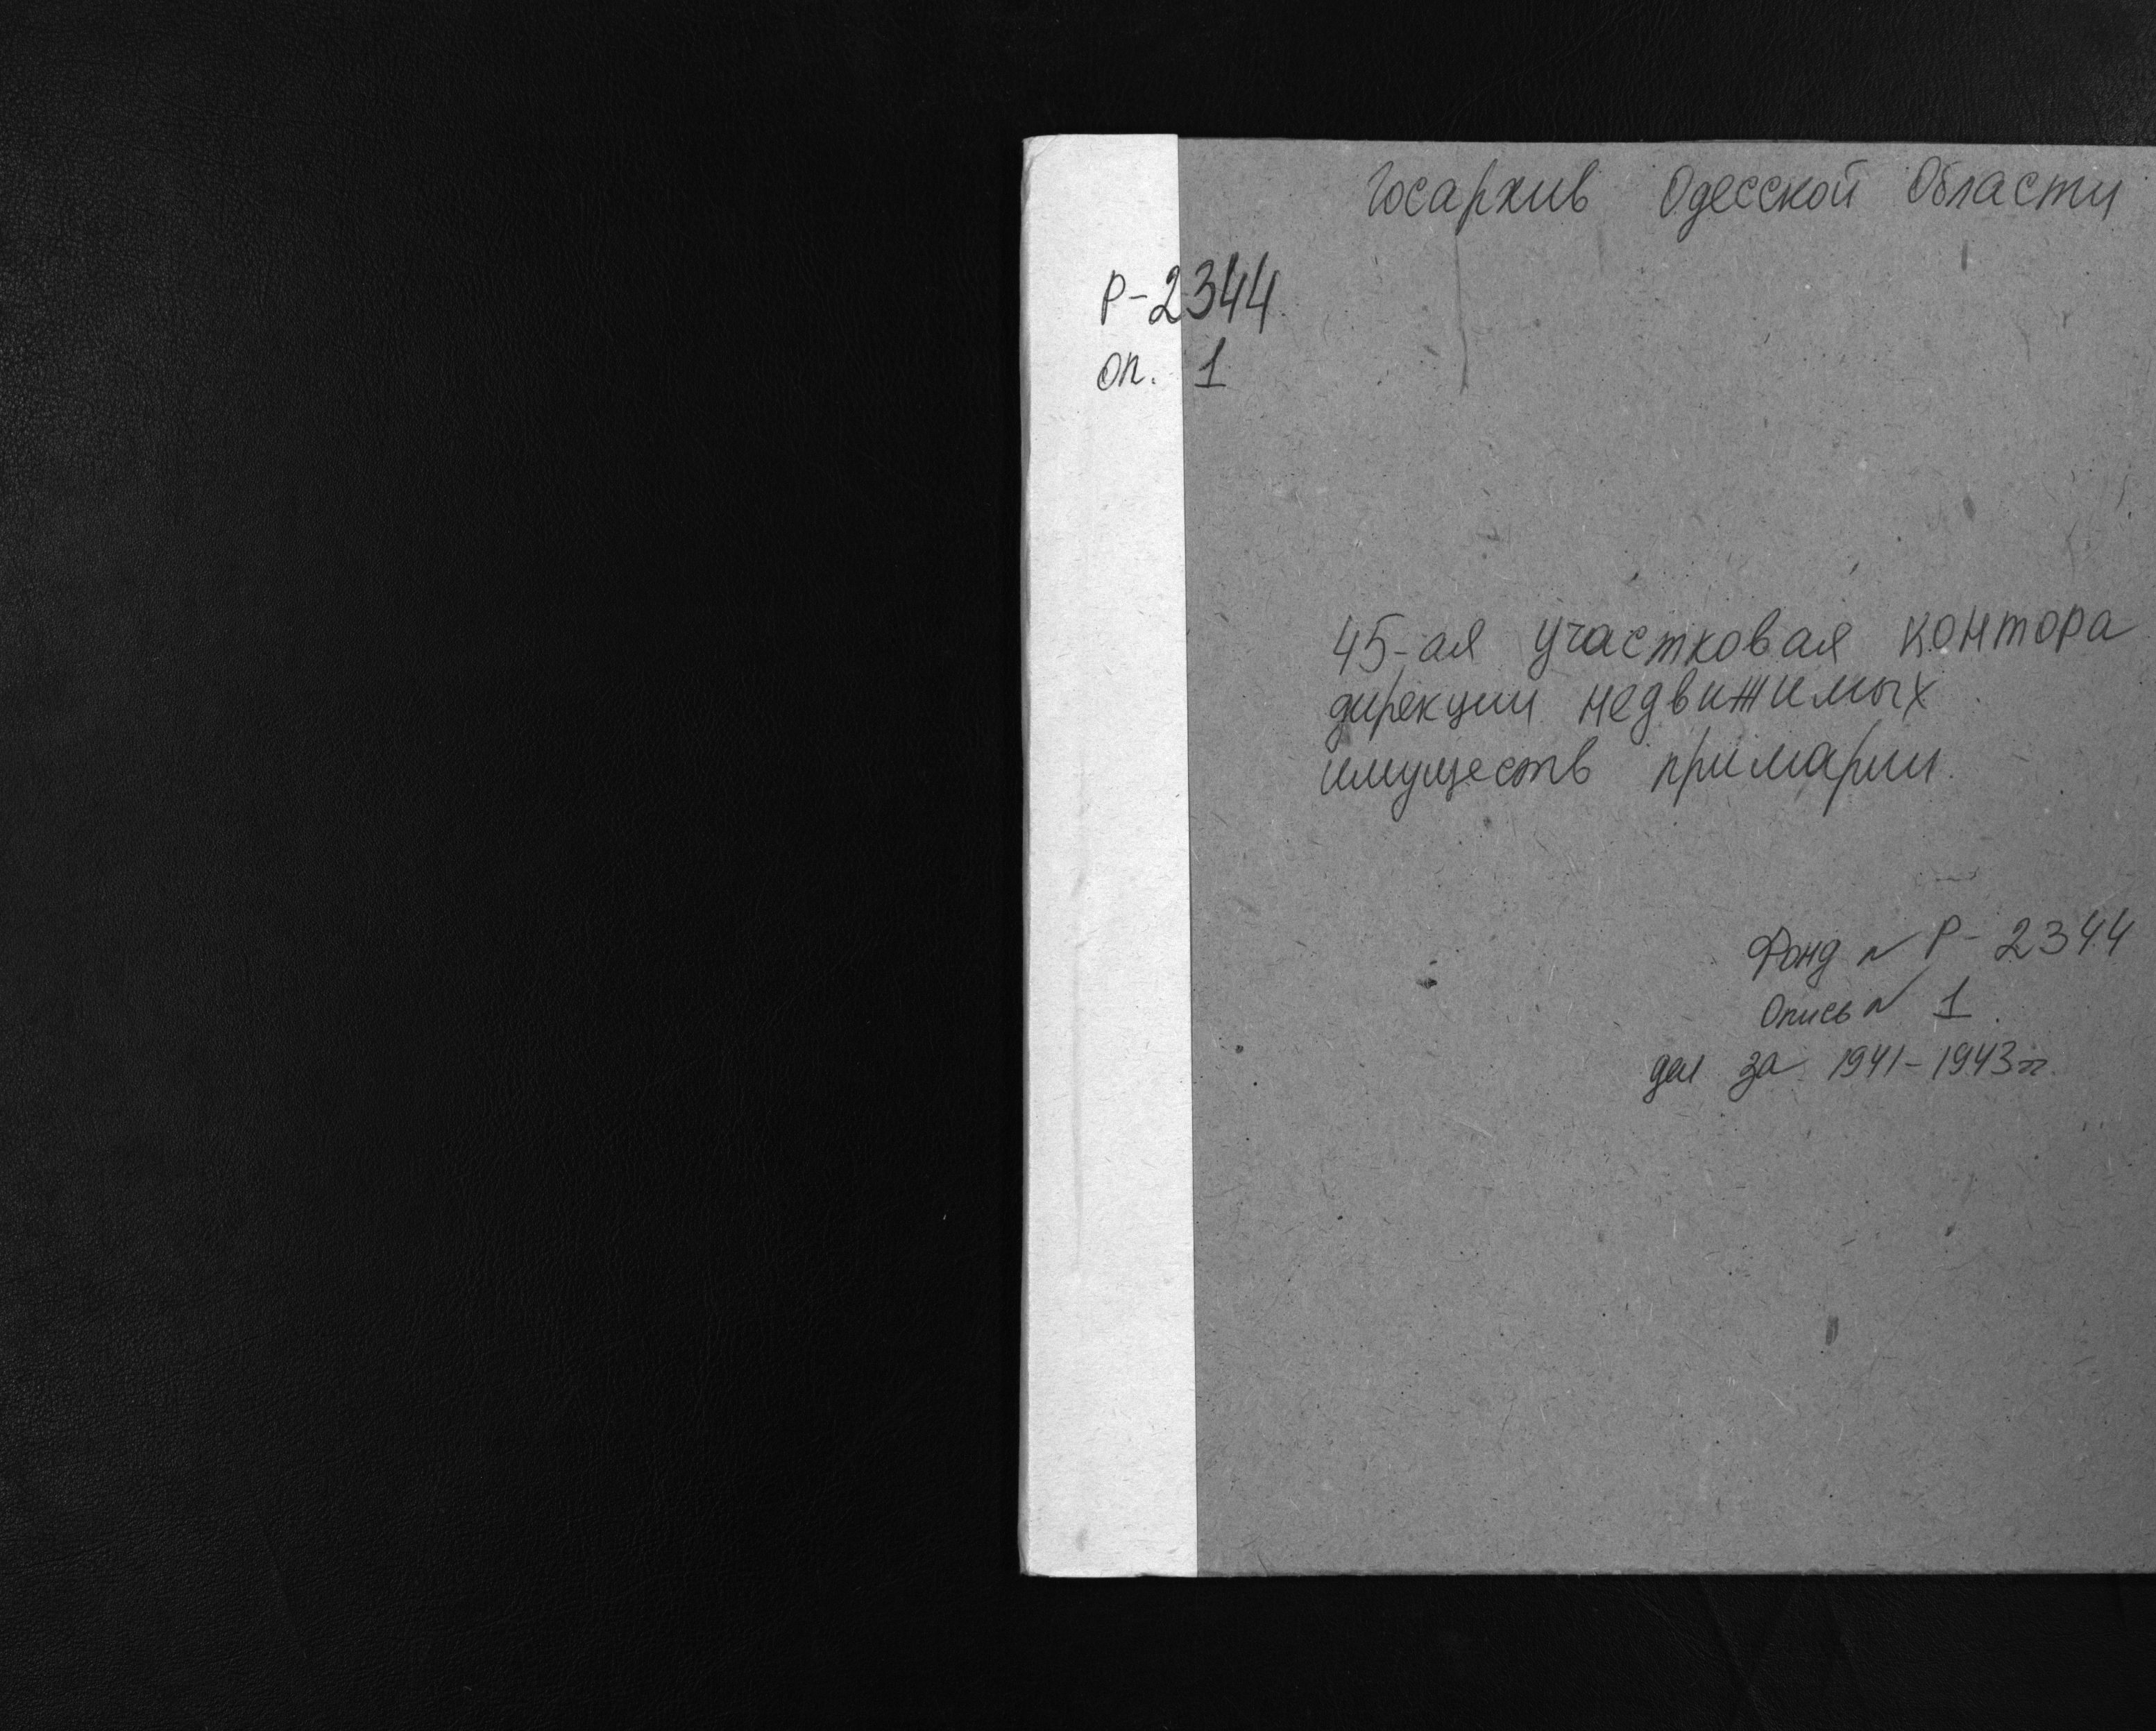 Госархив Одесской Области
Р-2344
оп. 1
45-ая участковая контора
дирекции недвижимых
имуществ примарии.
Фонд № Р-2344
Опись № 1
дел за 1941-1943гг.